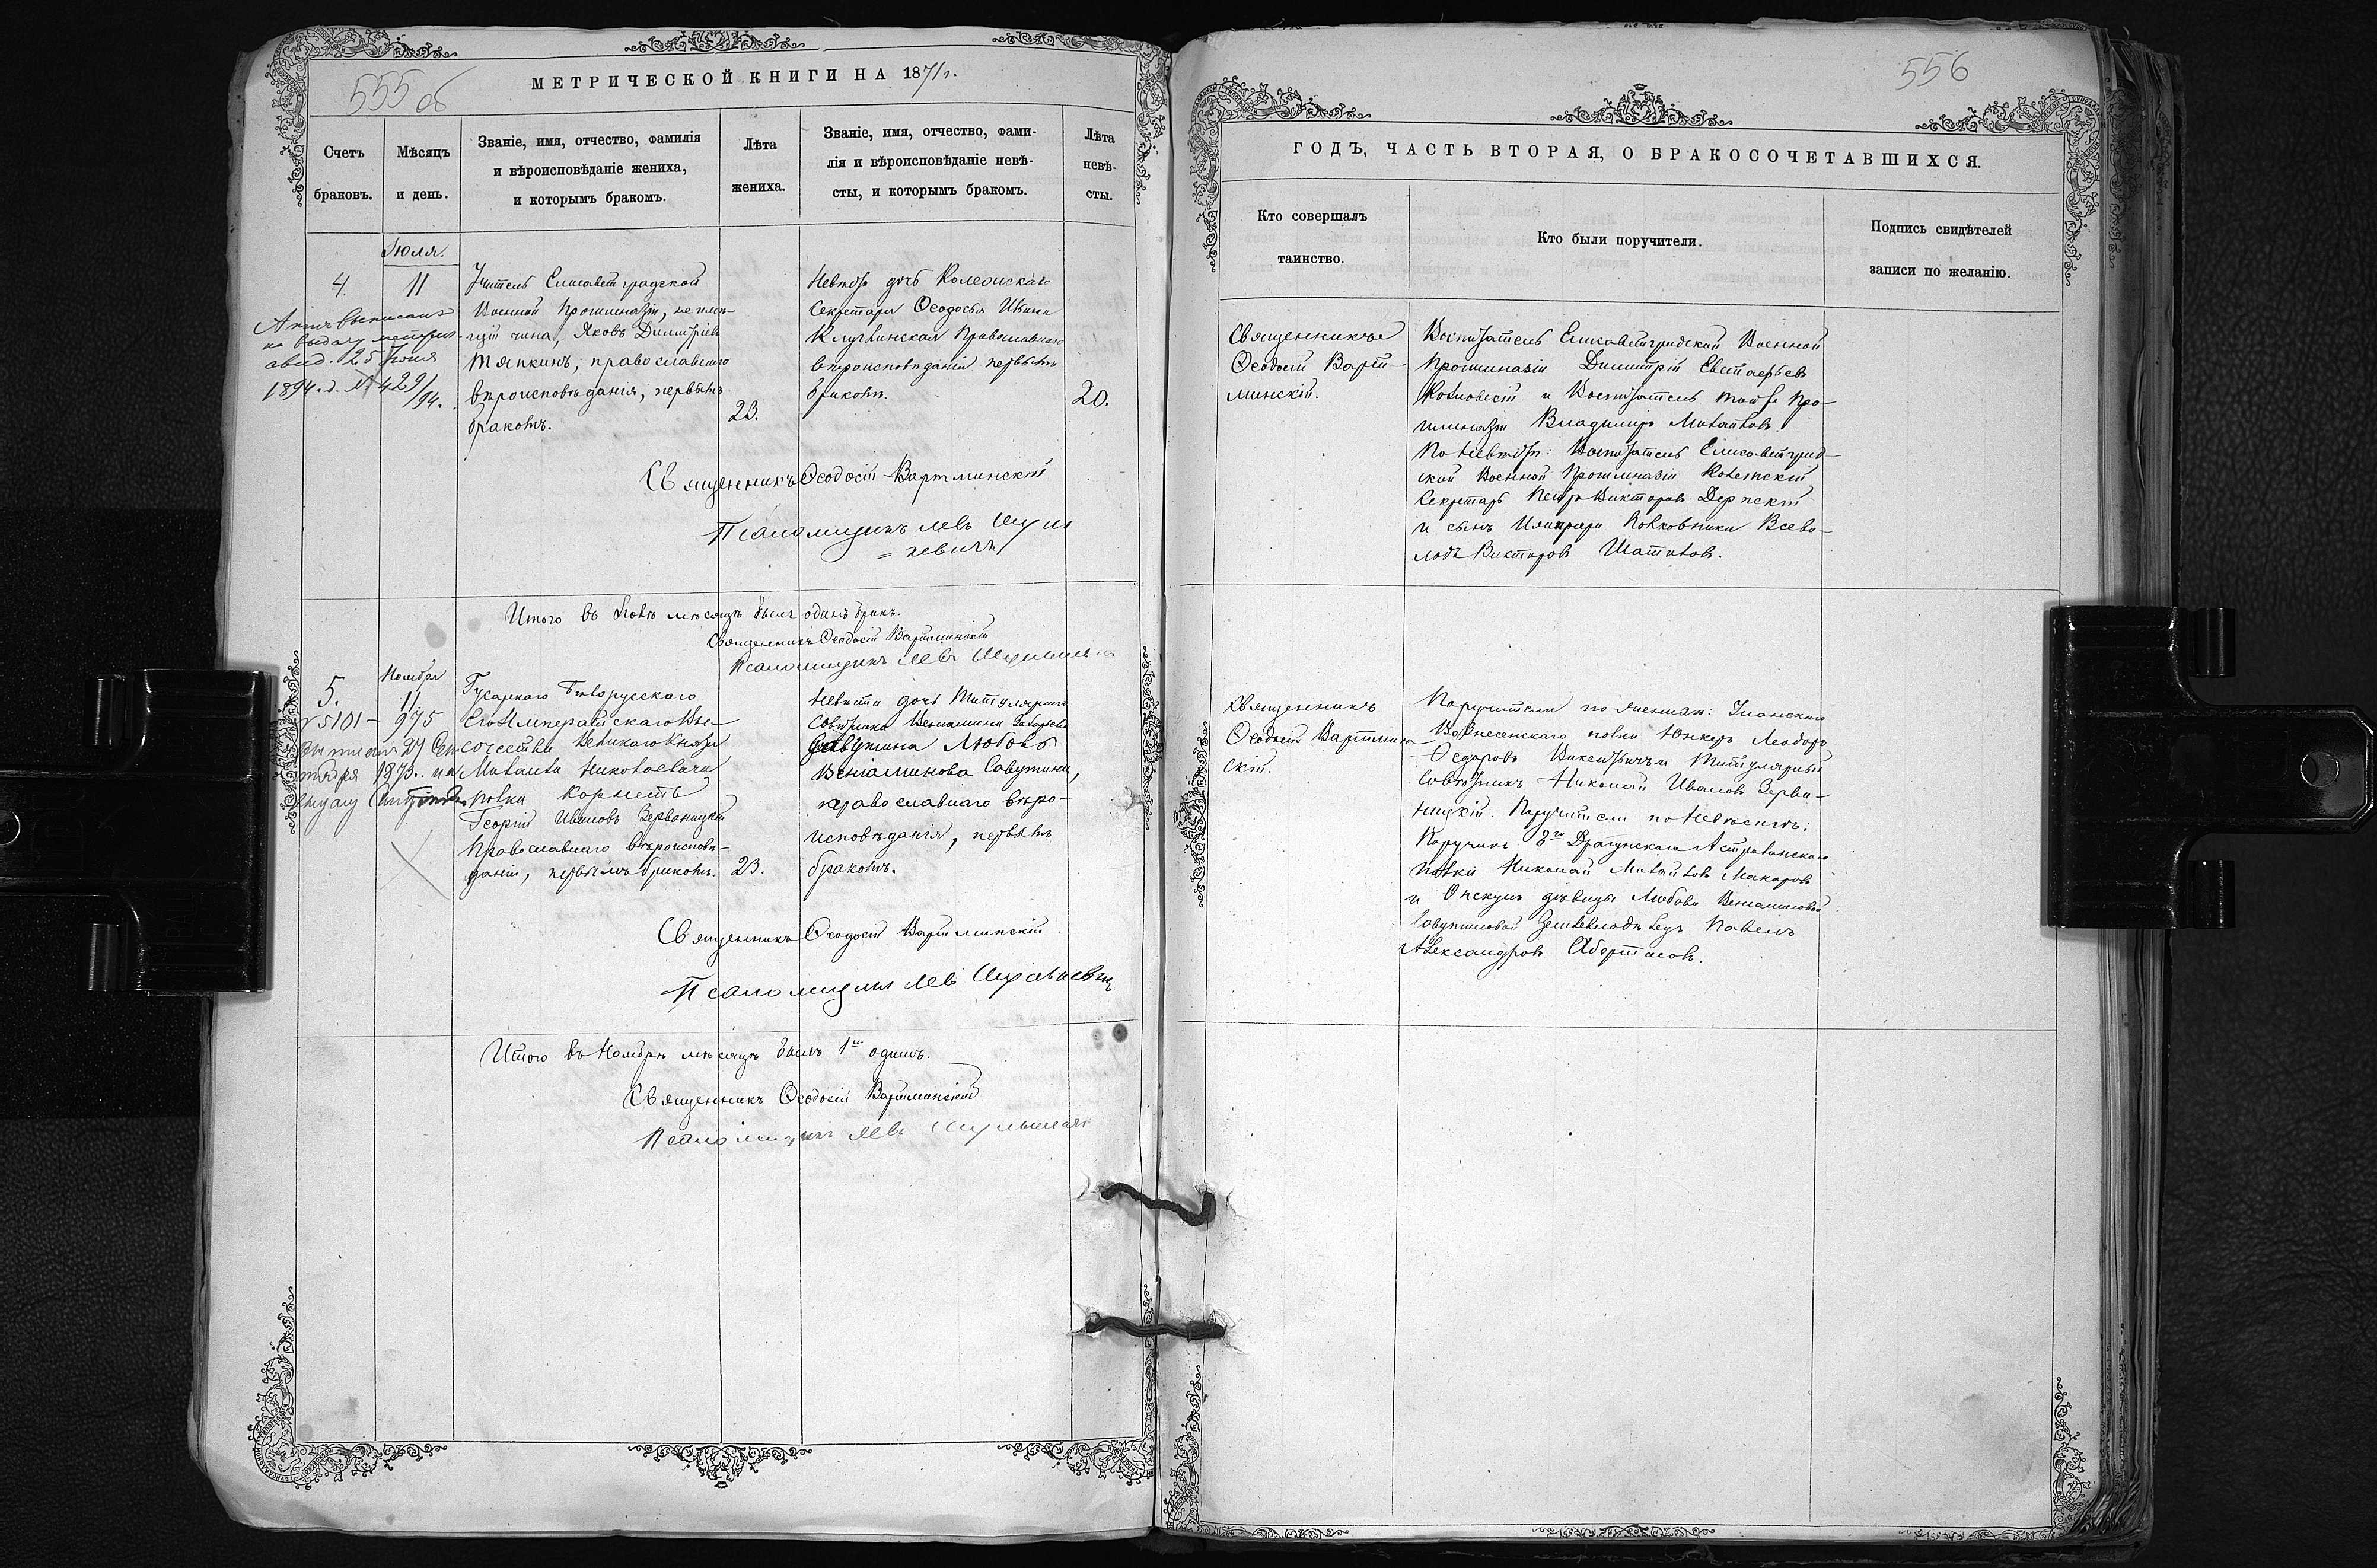 555 об
МЕТРИЧЕСКОЙ КНИГИ НА 1871 г.
Счетъ браковъ.
Мѣсяцъ и день.
Званіе, имя, отчество, фамилія
и вѣроисповѣданіе жениха,
и которымъ бракомъ.
Лѣта жениха.
Званіе, имя, отчество, фами-
лія и вѣроисповѣданіе невѣ-
сты, и которымъ бракомъ.
Лѣта невѣ-
сты.
Іюля.
4.
11
выписанъ
на выдачу
свид. 25 Іюня
1894. г. № 429/94.
Учитель Елисаветградской
Военной Прогимназіи, не имѣ-
щій чина, Яковъ Димитріевъ
Тяпкинъ, православнаго
вѣроисповѣданія, первымъ
бракомъ.
23.
дочь
Секретаря Ѳеодосья
Православнаго
вѣроисповѣданія первымъ
бракомъ.
20.
Священникъ Ѳеодосій Вартминскій
Псаломщикъ Левъ
Итого въ Іюлѣ мѣсяцѣ былъ одинъ бракъ.
Священникъ Ѳеодосій Вартминскій
Псаломщикъ Левъ
Ноября
5.
11
№ 5101 - 975
1873.
Гусарскаго Бѣлорусскаго
Его Императорскаго Вы-
сочества Великаго Князя
Михаила Николаевича
полка Корнетъ
Георгій Ивановъ
Православнаго вѣроисповѣ-
данія, первымъ бракомъ.
23.
Невѣста дочь Титулярнаго
Совѣтника Веніамина
Савутина Любовь
Веніаминова Савутина,
православнаго вѣро-
исповѣданія, первымъ
бракомъ.
Священникъ Ѳеодосій Вартминскій
Псаломщикъ Левъ
Итого въ Ноябрѣ мѣсяцѣ былъ 1 одинъ.
Священникъ Ѳеодосій Вартминскій
Псаломщикъ Левъ
556
ГОДЪ, ЧАСТЬ ВТОРАЯ, О БРАКОСОЧЕТАВШИХСЯ.
Кто совершалъ
таинство.
Кто были поручители.
Подпись свидѣтелей
записи по желанію.
Священникъ
Ѳеодосій Варт-
минскій.
Воспитатель Елисаветградской Военной
Прогимназіи Димитрій Евстафьевъ
и Воспитатель той же Про-
гимназіи Владиміръ Михайловъ.
По невѣстѣ: Воспитатель Елисаветград-
ской Военной Прогимназіи
Секретарь Петръ Викторовъ
и сынъ Полковника Всево-
лодъ Викторовъ Шатиловъ.
Священникъ
Ѳеодосій Вартмин-
скій.
Поручители по женихѣ: Уланскаго
Вознесенскаго полка Юнкеръ
и Титулярный
Совѣтникъ Николай Ивановъ
Поручители по невѣстѣ:
Поручикъ 8го Драгунскаго Астраханскаго
полка Николай Михайловъ Макаровъ
и Опекунъ дѣвицы Любови Веніаминовой
Савутиной Землевладѣлецъ Павелъ
Александровъ